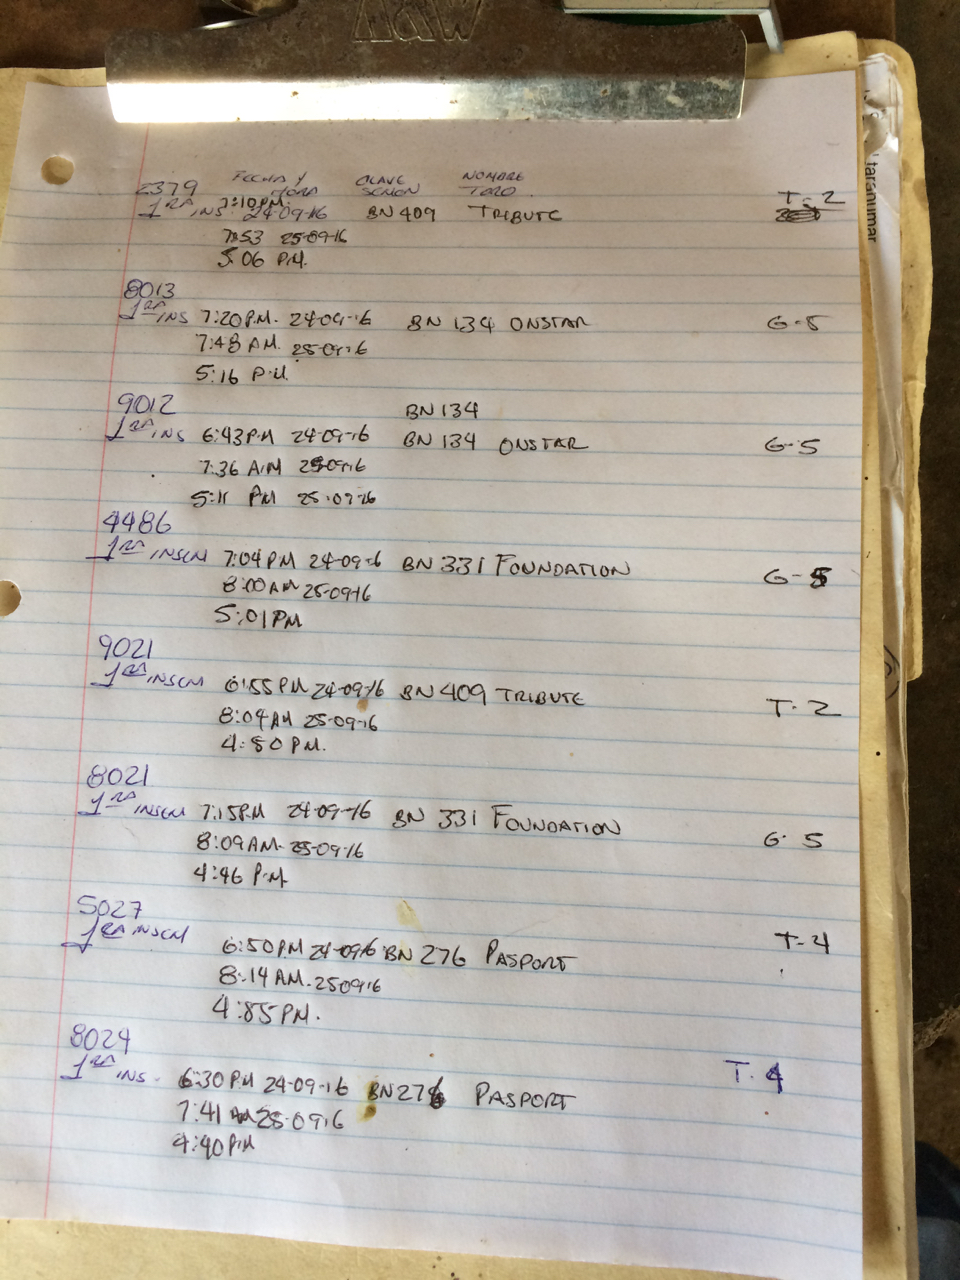 A&W
FECHA Y HORA CLAVE SEMEN NOMBRE TORO
2379
7:10 P.M.
1RA INS 24-09-16 BN 409 TRIBUTE T-2
7:53 25-09-16
5:06 P.M.
8013
1RA INS 7:20 P.M. 24-09-16 BN 134 ONSTAR G-5
7:48 AM. 25-09-16
5:16 P.M.
9012 BN 134
1RA INS 6:43 P.M 24-09-16 BN 134 ONSTAR G-5
7:36 A.M 25-09-16
5:11 PM 25-09-16
4486
1RA INSCM 7:04 PM 24-09-16 BN 331 FOUNDATION G-5
8:00 AM 25-09-16
5:01 PM
9021
1RA INSCM 6:55 PM 24-09-16 BN 409 TRIBUTE T-2
8:04 AM 25-09-16
4:50 P.M.
8021
1RA INSCM 7:15 P.M 24-09-16 BN 331 FOUNDATION G-5
8:09 AM. 25-09-16
4:46 P.M
5027
1RA INSCM T-4
6:50 P.M 24-09-16 BN 276 PASPORT
8:14 AM. 25 09 16
4:55 PM.
8024
1RA INS. 6:30 PM 24-09-16 BN 276 PASPORT T-4
7:41 AM 25-09-16
4:40 P.M
tarahumar